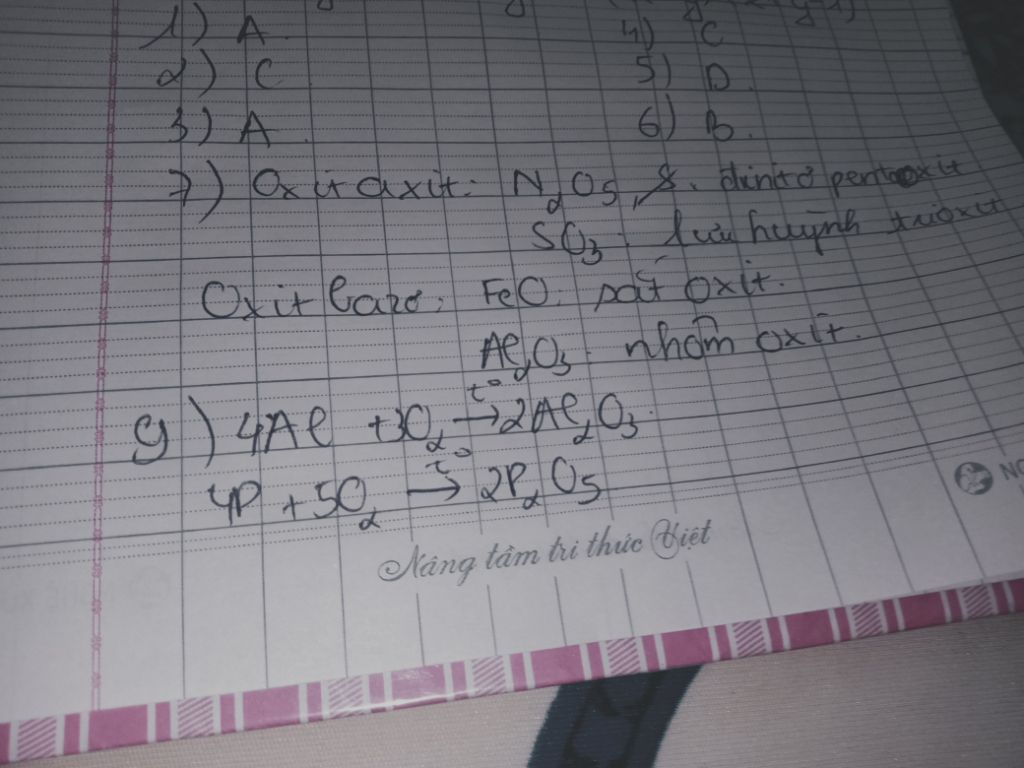 1) A. 4) C
2) C 5) D.
3) A. 6) B.
7) Oxit axit: N2O5, đinitơ pentoxit
SO3. lưu huỳnh trioxit
Oxit bazơ: FeO. sắt oxit.
Al2O3. nhôm oxit.
9) 4Al + 3O2 t°→ 2Al2O3.
4P + 5O2 t°→ 2P2O5
Nâng tầm tri thức Việt